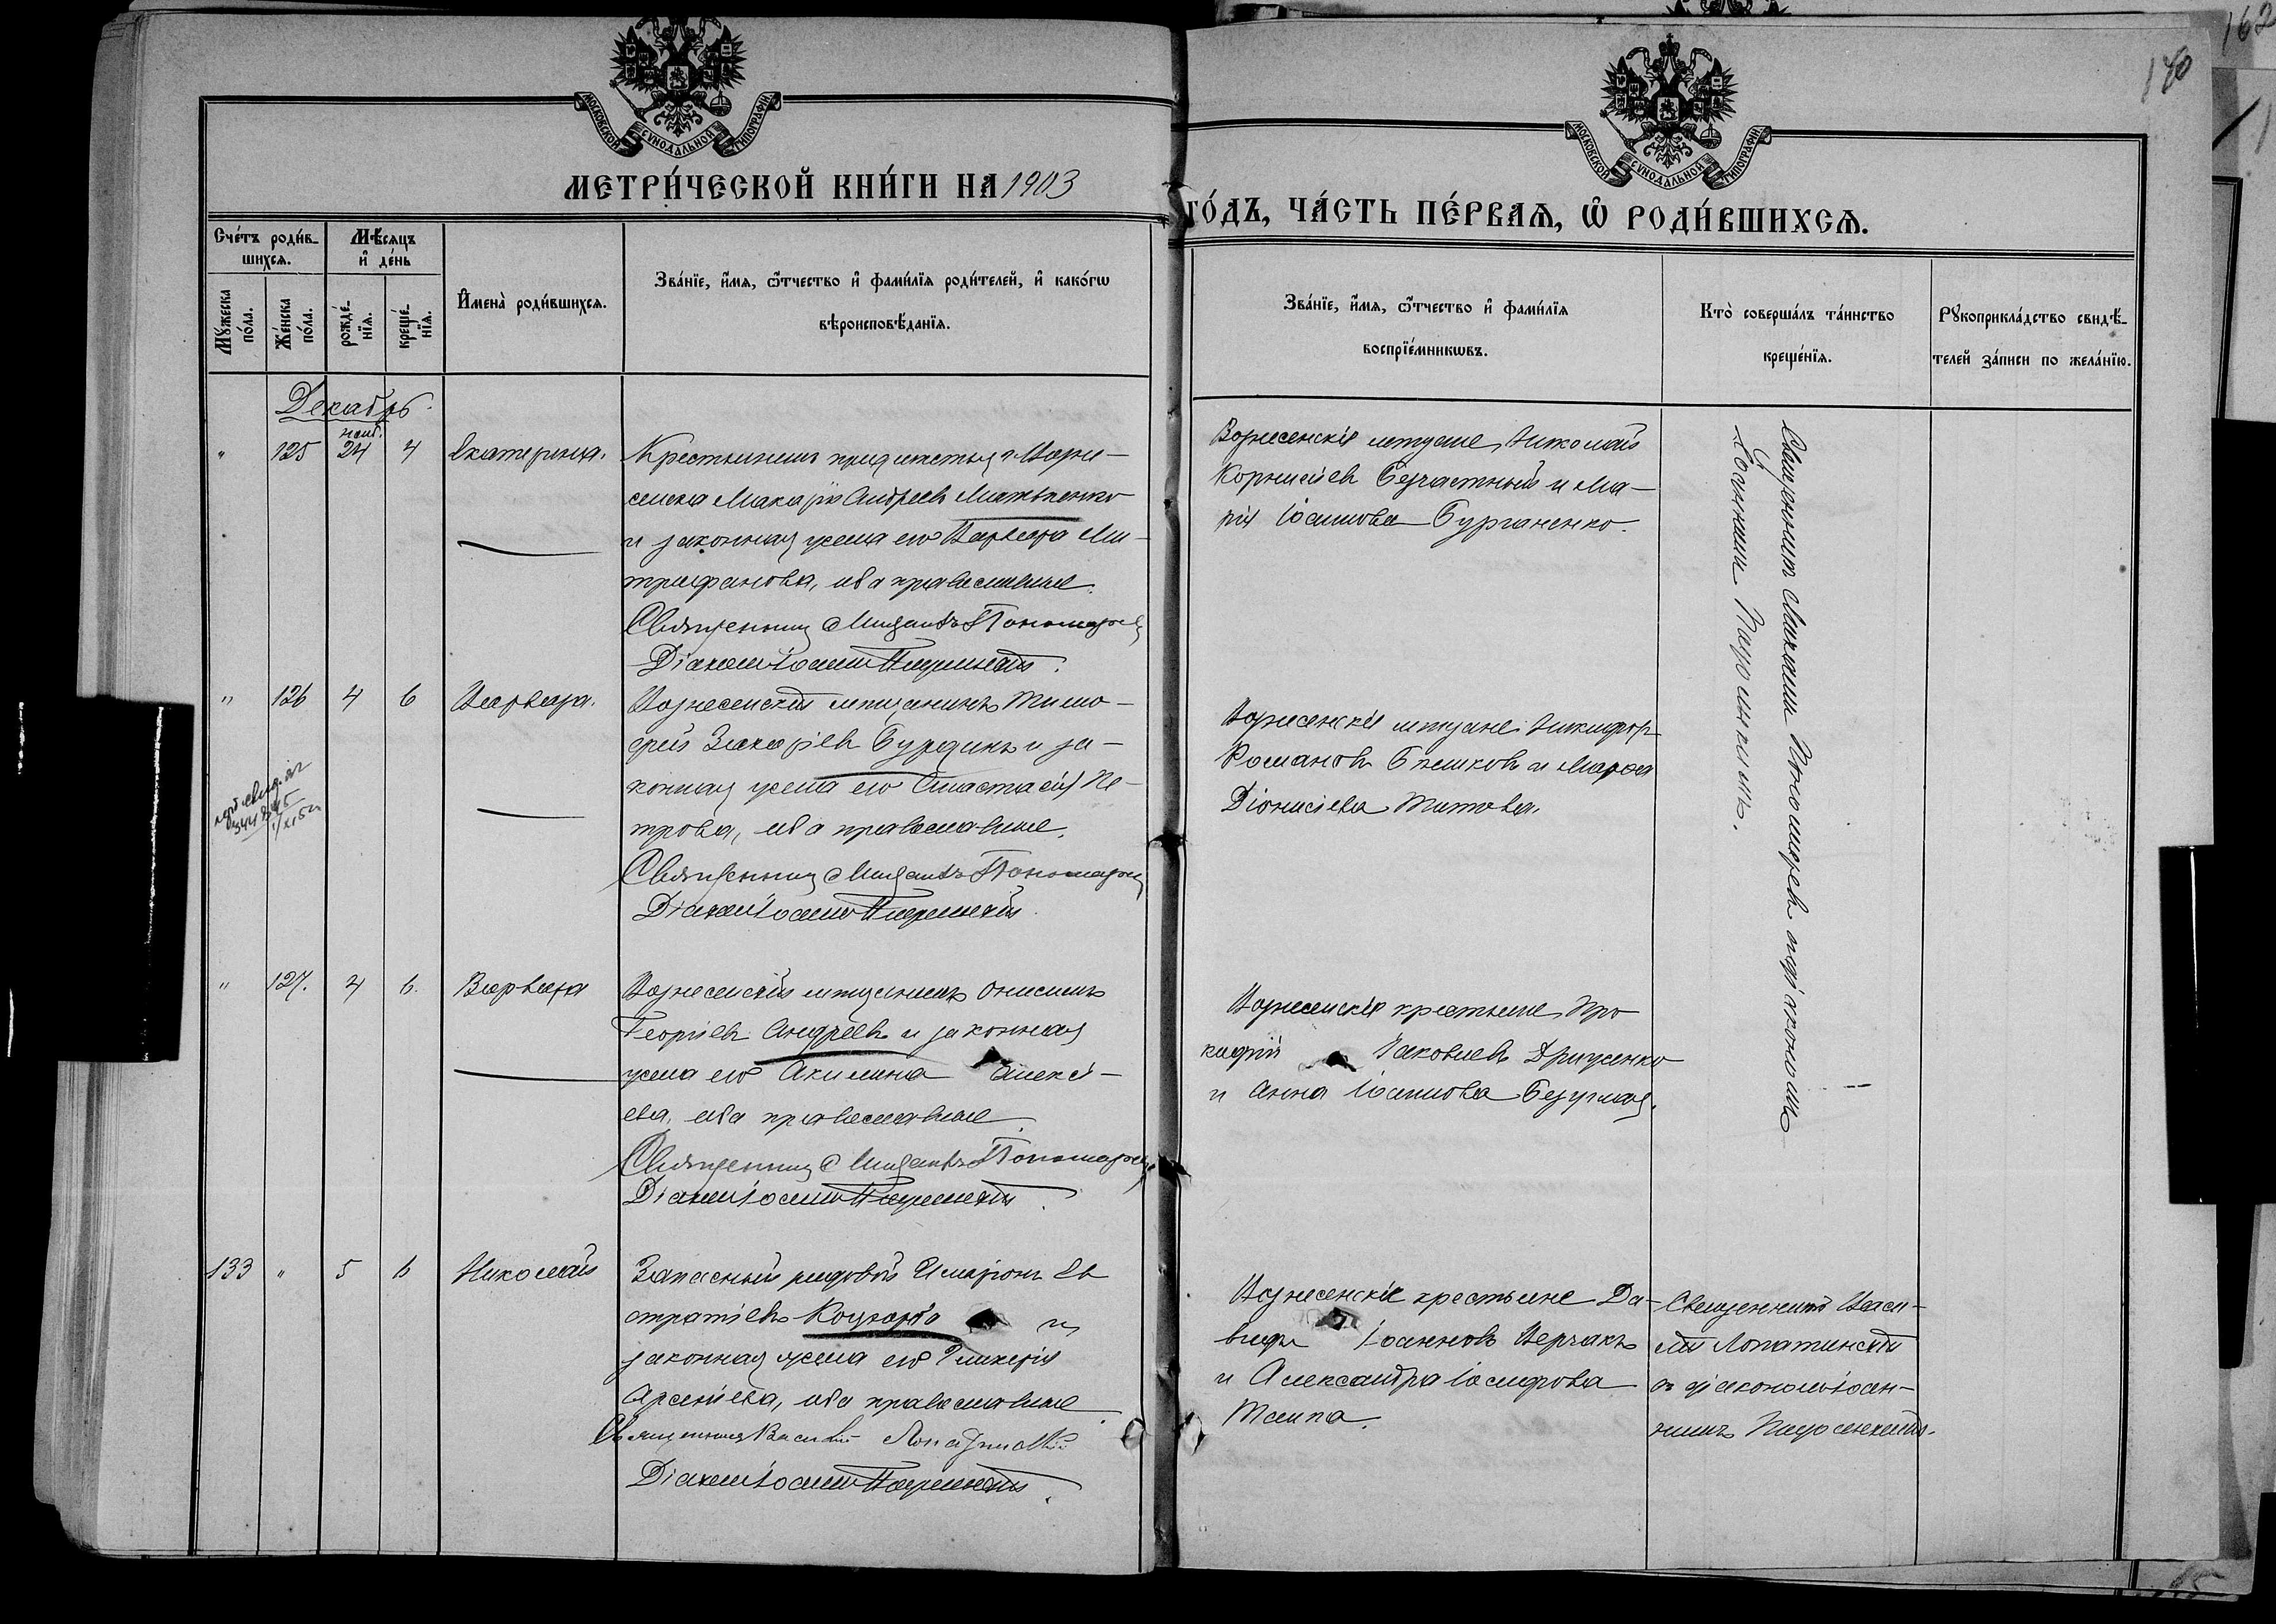 162
140
МОСКОВСКОЙ СѴНОДАЛЬНОЙ ТИПОГРАФІИ
МОСКОВСКОЙ СѴНОДАЛЬНОЙ ТИПОГРАФІИ
МЕТРИ́ЧЕСКОЙ КНИ́ГИ НА 1903
ГО́ДЪ, ЧА́СТЬ ПЕ́РВАѦ, Ѡ҆ РОДИ́ВШИХСѦ.
Сче́тъ роди́в-
шихсѧ.
Мѣ́сѧцъ
и҆ де́нь
Мꙋ́жеска
по́ла.
Же́нска
по́ла.
рожде́-
нїѧ.
креще́-
нїѧ.
И҆мена̀ роди́вшихсѧ.
Зва́нїе, и҆́мѧ, ѻ҆́тчество и҆ фами́лїѧ роди́телей, и҆ како́гѡ
вѣроисповѣ́данїѧ.
Зва́нїе, и҆́мѧ, ѻ҆́тчество и҆ фами́лїѧ
воспрїе́мникѡвъ.
Кто̀ соверша́лъ та́инство
креще́нїѧ.
Рꙋкоприкла́дство свидѣ́-
телей за́писи по жела́нїю.
Декабрь.
нояб.
" 125 24 4 Екатерина.
Крестьянинъ г. Возне-
сенска Макарій Андреевъ
и законная жена его Варвара Ми-
трофанова, оба православные.
Священникъ Михаилъ Пономаревъ
Діаконъ Іоаннъ
Вознесенскіе мѣщане, Николай
Корнилiевъ Безчастный и Ма-
рія Іоаннова Бурганенко.
Священникъ Михаилъ Пономаревъ съ діакономъ
Іоанномъ
" 126 4 6 Варвара.
Вознесенскій мѣщанинъ Тимо-
фей Захаріевъ Бурдинъ и за-
конная жена его Анастасія Пе-
трова, оба православные.
Священникъ Михаилъ Пономаревъ
Діаконъ Іоаннъ
Вознесенскіе мѣщане: Никифоръ
Романовъ Бѣшковъ и Марфа
Діонисіева Титова.
" 127. 4 6. Варвара
Вознесенскій мѣщанинъ Онисимъ
Георгіевъ Андреевъ и законная
жена его Акилина Алексѣ-
ева, оба православные.
Священникъ Михаилъ Пономаревъ
Діаконъ Іоаннъ
Вознесенскіе крестьяне, Про
кофій Іаковлевъ Дриженко
и Анна Іоаннова Безуглая.
133 " 5 6 Николай
Запасный рядовой Иларіонъ Ев
стратіевъ Коцюрба и
законная жена его Гликерія
Арсеніева, оба православные.
Священникъ Василій Лопатинскій
Діаконъ Іоаннъ
Вознесенскіе крестьяне Да-
видъ Іоанновъ Верчакъ
и Александра Іосифова
Священникъ Васи-
лій Лопатинскій
съ діакономъ Іоан-
номъ